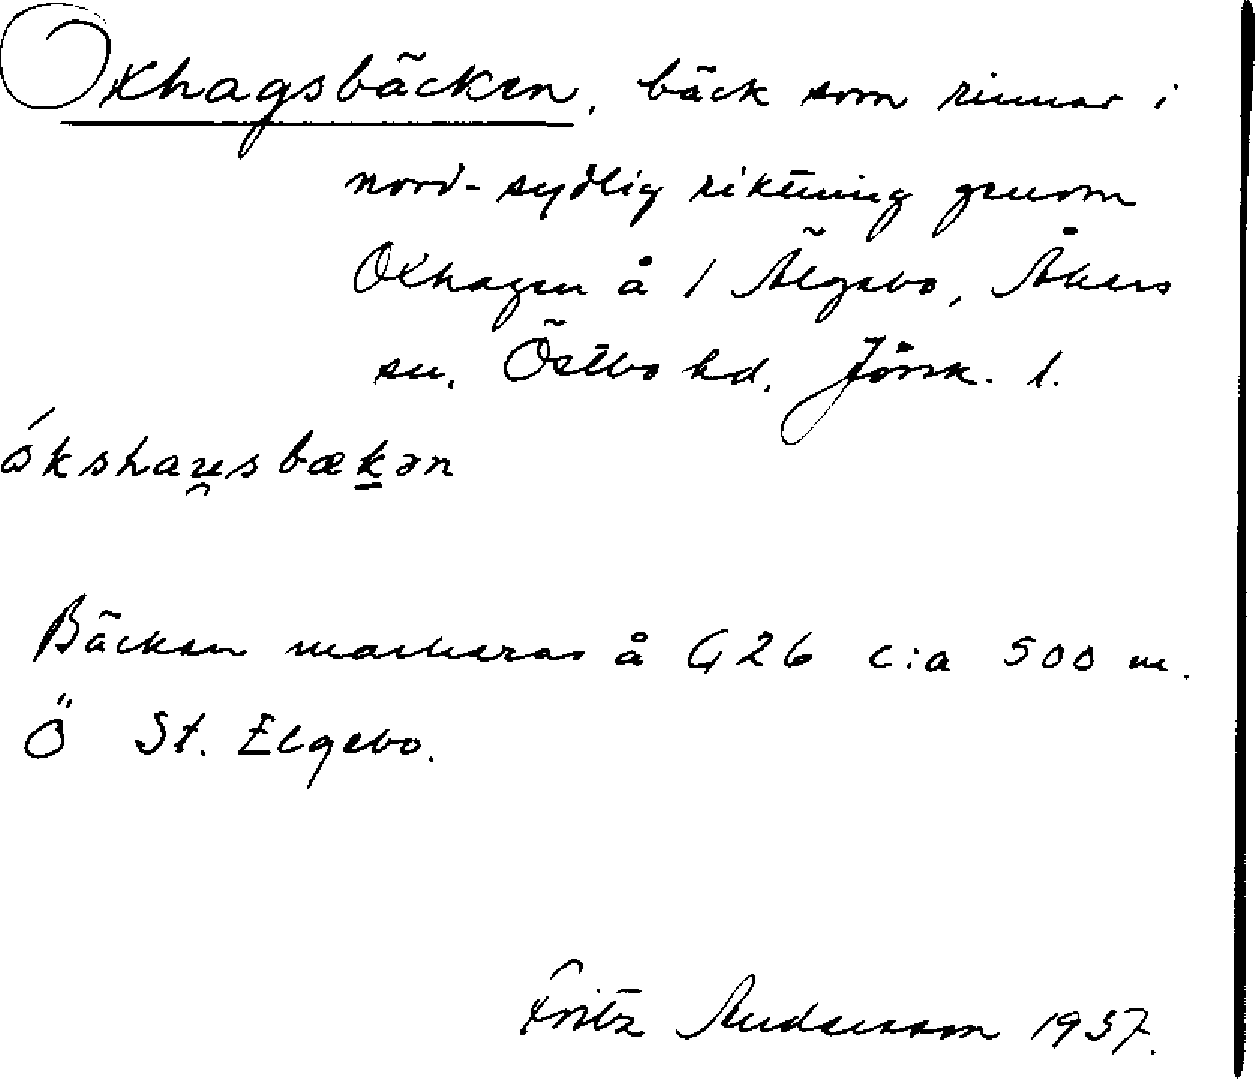 Oxhagsbäcken, bäck som rinner i
nord-sydlig riktning genom
Oxhagen å 1 Älgebo, Åkers
sn. Östbo hd. Jönk. l.
ókshau̯sbæḵən
Bäcken markeras å G 26 c:a 500 m.
Ö St. Elgebo.
Fritz Andersson 1937.